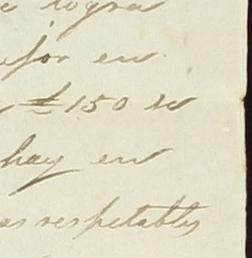 e logra
en
£150 se
hay en
as respetables